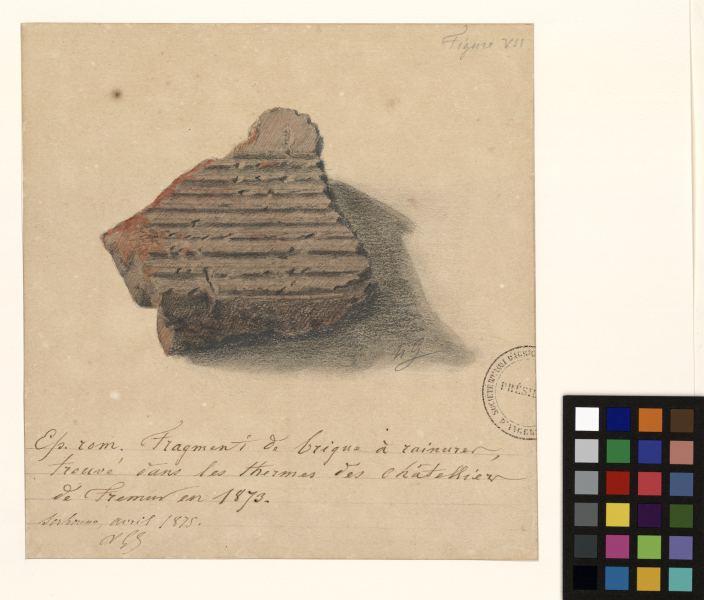 Figure VII
Ep. rom. Fragment de brique à rainures,
trouvé dans les thermes des châtelliers
de Fremur en 1873.
Sorbonne, avril 1875.
SOCIÉTÉ D'AGRIC
PRÉSI